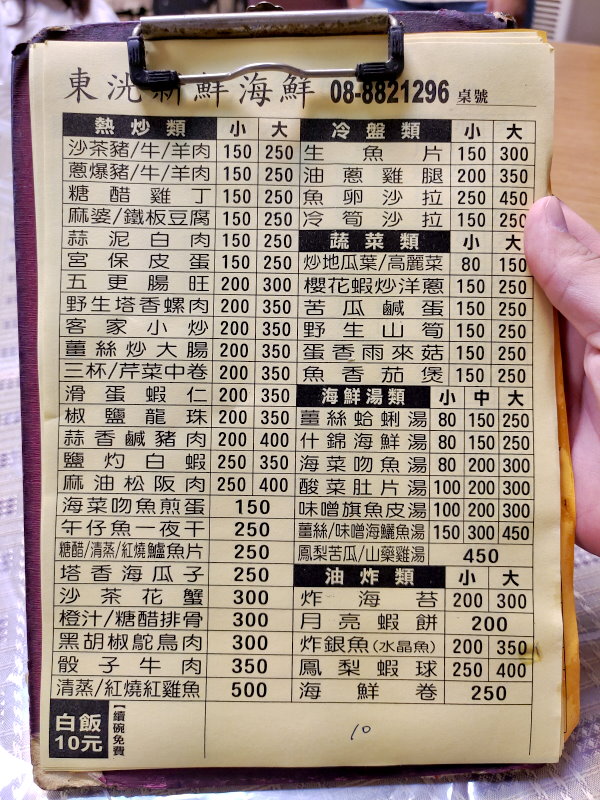 東洸新鮮海鮮 08-8821296 桌號
熱炒類 小 大
沙茶豬/牛/羊肉 150 250
蔥爆豬/牛/羊肉 150 250
糖醋雞丁 150 250
麻婆/鐵板豆腐 150 250
蒜泥白肉 150 250
宮保皮蛋 150 250
五更腸旺 200 300
野生塔香螺肉 200 350
客家小炒 200 350
薑絲炒大腸 200 350
三杯/芹菜中卷 200 350
滑蛋蝦仁 200 350
椒鹽龍珠 200 350
蒜香鹹豬肉 200 400
鹽灼白蝦 250 350
麻油松阪肉 250 400
海菜吻魚煎蛋 150
午仔魚一夜干 250
糖醋/清蒸/紅燒鱸魚片 250
塔香海瓜子 250
沙茶花蟹 300
橙汁/糖醋排骨 300
黑胡椒鴕鳥肉 300
骰子牛肉 350
清蒸/紅燒紅雞魚 500
白飯
10元
【續碗免費】
冷盤類 小 大
生魚片 150 300
油蔥雞腿 200 350
魚卵沙拉 250 450
冷筍沙拉 150 250
蔬菜類 小 大
炒地瓜葉/高麗菜 80 150
櫻花蝦炒洋蔥 150 250
苦瓜鹹蛋 150 250
野生山筍 150 250
蛋香雨來菇 150 250
魚香茄煲 150 250
海鮮湯類 小 中 大
薑絲蛤蜊湯 80 150 250
什錦海鮮湯 80 150 250
海菜吻魚湯 80 200 300
酸菜肚片湯 100 200 300
味噌旗魚皮湯 100 200 300
薑絲/味噌海鱺魚湯 150 300 450
鳳梨苦瓜/山藥雞湯 450
油炸類 小 大
炸海苔 200 300
月亮蝦餅 200
炸銀魚(水晶魚) 200 350
鳳梨蝦球 250 400
海鮮卷 250
10